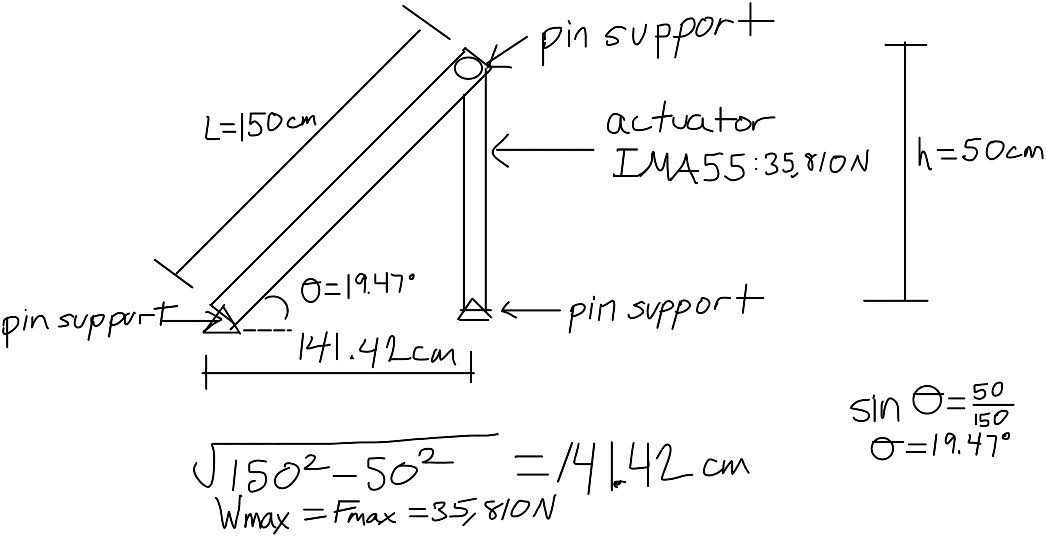 pin support
L=150cm
actuator
IMA55:35,810N
h=50cm
θ=19.47°
pin support
pin support
141.42cm
sin θ=50/150
θ=19.47°
√150²-50² =141.42 cm
Wmax =Fmax =35,810N